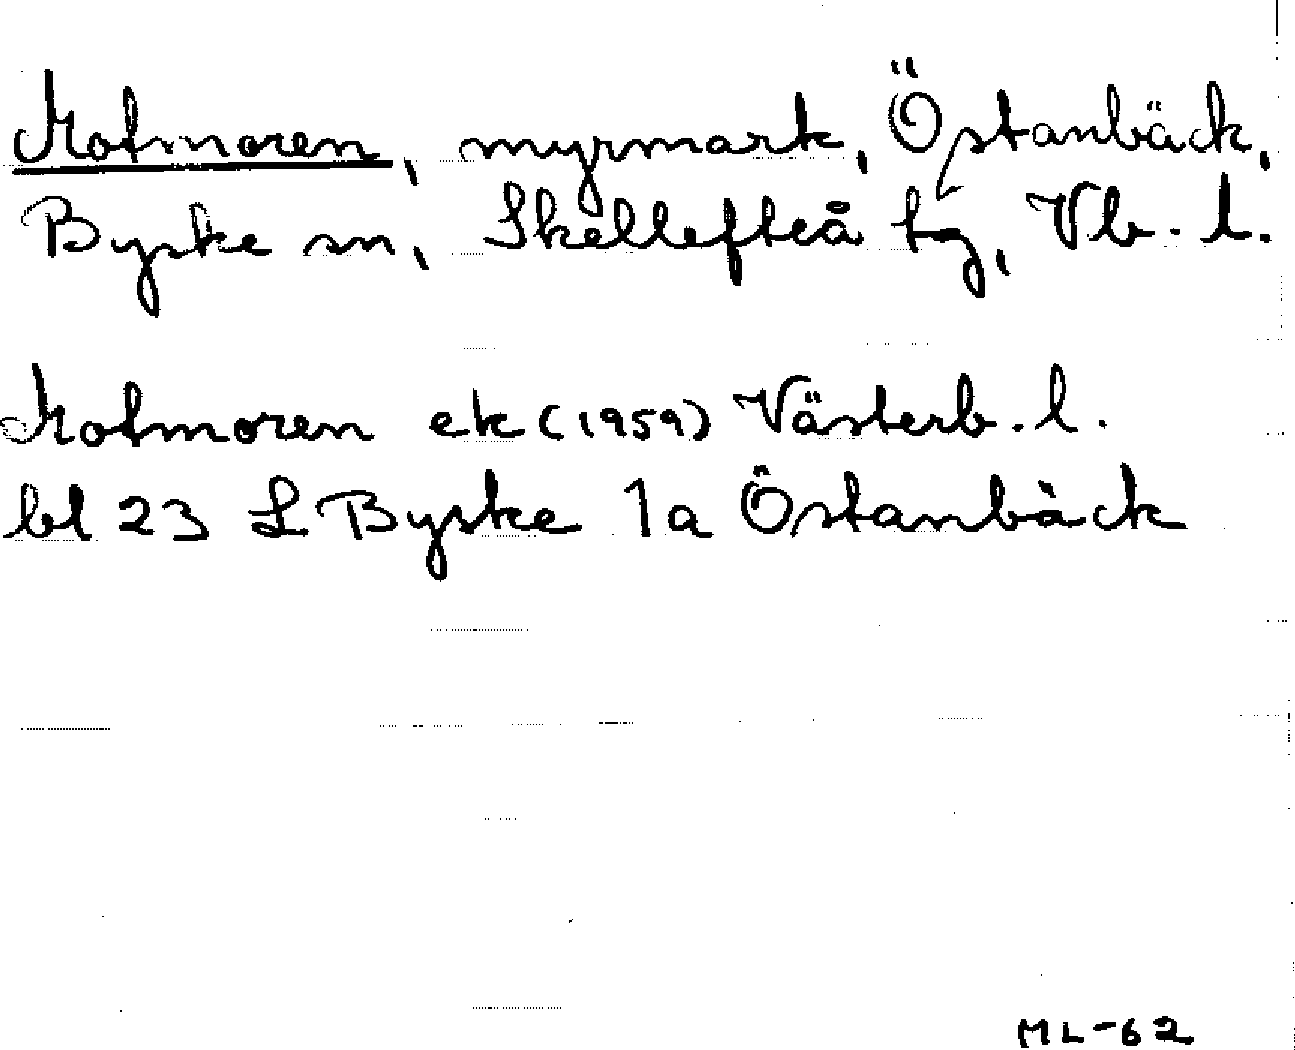 myrmark, Östanbäck,
Byske sn, Skellefteå tg, Vb. l.
ek (1959) Västerb. l.
bl 23 L Byske 1a Östanbäck
ML-62